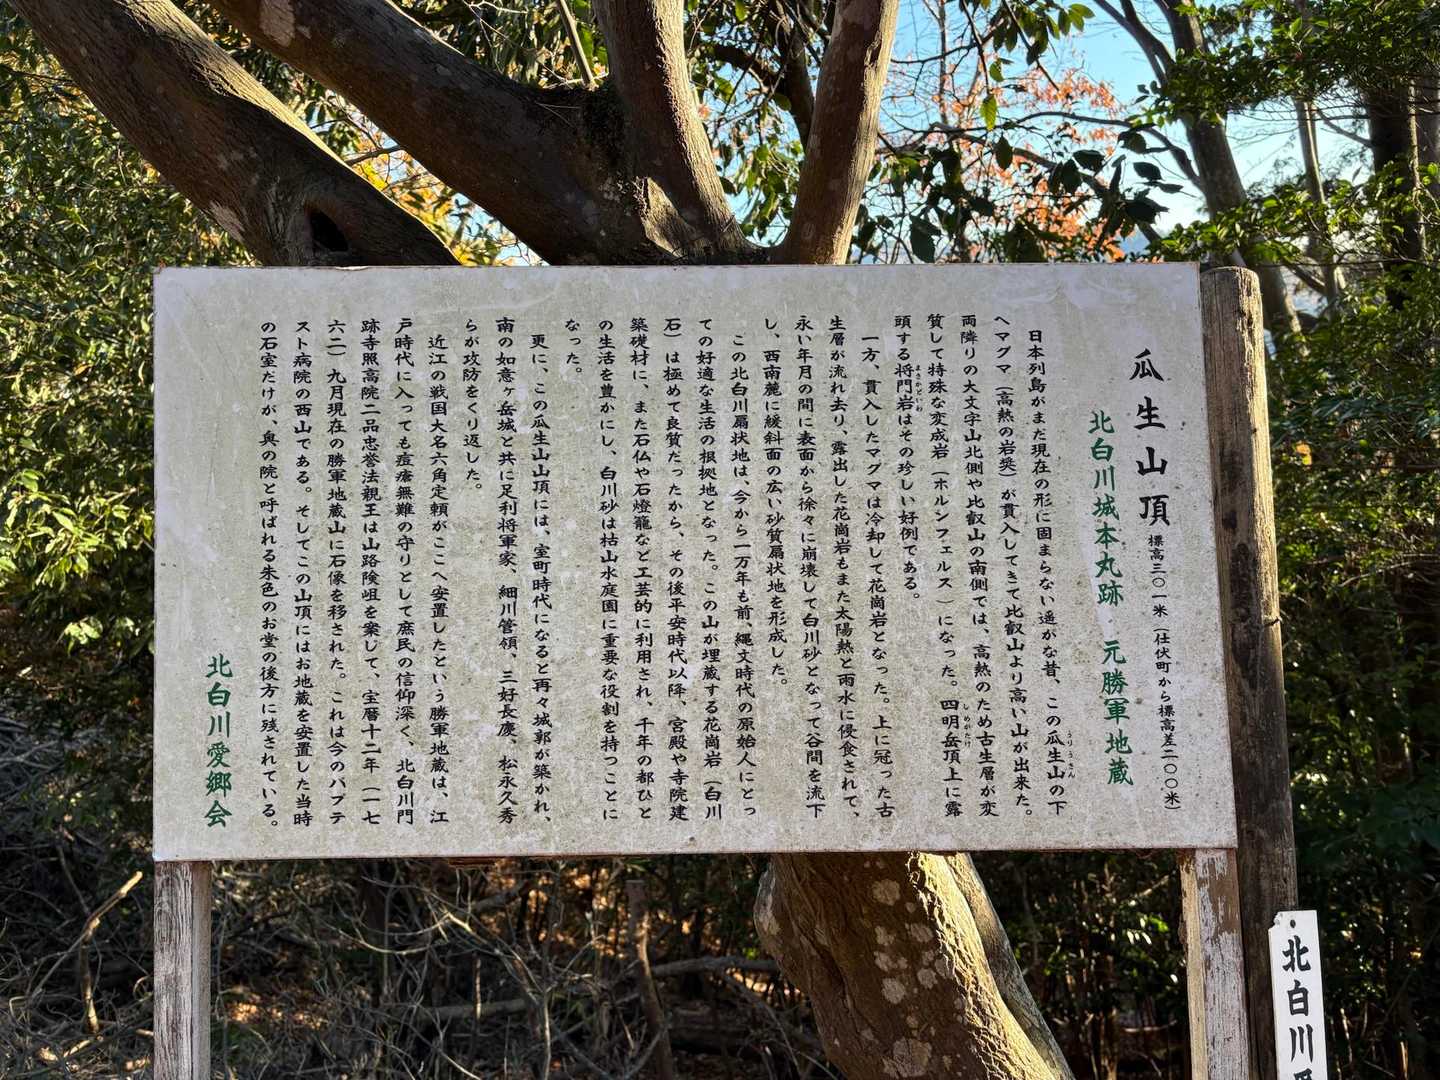 瓜生山頂 標高三〇一米(仕伏町から標高差二〇〇米)
北白川城本丸跡 元勝軍地蔵
日本列島がまだ現在の形に固まらない遥かな昔、この瓜生山の下
うりうざん
へマグマ(高熱の岩奨)が貫入してきて比叡山より高い山が出来た。
両隣りの大文字山北側や比叡山の南側では、高熱のため古生層が変
質して特殊な変成岩(ホルンフェルス)になった。四明岳頂上に露
しめがたけ
頭する将門岩はその珍しい好例である。
まさかどいわ
一方、貫入したマグマは冷却して花崗岩となった。上に冠った古
生層が流れ去り、露出した花崗岩もまた太陽熱と雨水に侵食されて、
永い年月の間に表面から徐々に崩壊して白川砂となって谷間を流下
し、西南麓に緩斜面の広い砂質扇状地を形成した。
この北白川扇状地は、今から一万年も前、縄文時代の原始人にとっ
ての好適な生活の根拠地となった。この山が埋蔵する花崗岩(白川
石)は極めて良質だったから、その後平安時代以降、宮殿や寺院建
築礎材に、また石仏や石燈籠など工芸的に利用され、千年の都びと
の生活を豊かにし、白川砂は枯山水庭園に重要な役割を持つことに
なった。
更に、この瓜生山山頂には、室町時代になると再々城郭が築かれ、
南の如意ヶ岳城と共に足利将軍家、細川管領、三好長慶、松永久秀
らが攻防をくり返した。
近江の戦国大名六角定頼がここへ安置したという勝軍地蔵は、江
戸時代に入っても痘瘡無難の守りとして庶民の信仰深く、北白川門
跡寺照高院二品忠誉法親王は山路険岨を案じて、宝暦十二年(一七
六二)九月現在の勝軍地蔵山に石像を移された。これは今のバプテ
スト病院の西山である。そしてこの山頂にはお地蔵を安置した当時
の石室だけが、奥の院と呼ばれる朱色のお堂の後方に残されている。
北白川愛郷会
北白川